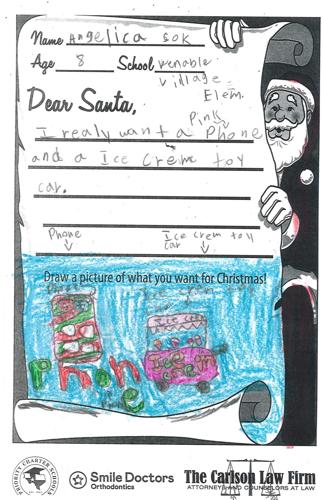 Name Angelica Sok
Age 8 School venable
village
Elem.
Dear Santa,
Pink
I realy want a Phone
and a Ice Crem toy
car.
Phone
Ice crem toy
car
Draw a picture of what you want for Christmas!
Ice crem
Phone
PRIORITY CHARTER SCHOOLS
Smile Doctors
Orthodontics
The Carlson Law Firm
ATTORNEYS AND COUNSELORS AT LAW